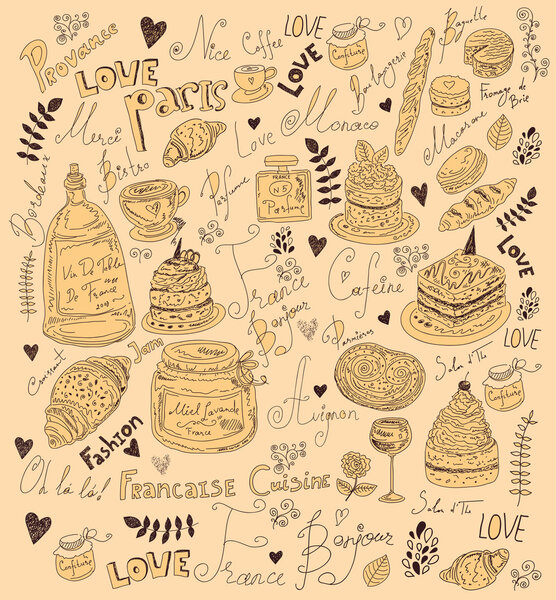 Provance
LOVE
Nice
Coffee
LOVE
LOVE
Confiture
Boulangerie
Baguette
Fromage de
Brie
Paris
Merci
Bistro
Love
Monaco
Macarone
Bordeaux
Parfume
FRANCE
N5
Parfume
Vin De Table
De France
France
Bonjour
Cafeine
LOVE
LOVE
Croissant
Jam
Miel Lavande
France
Avignon
Confiture
Fashion
Oh là là!
Francaise
Cuisine
Confiture
LOVE
France
Bonjour
LOVE